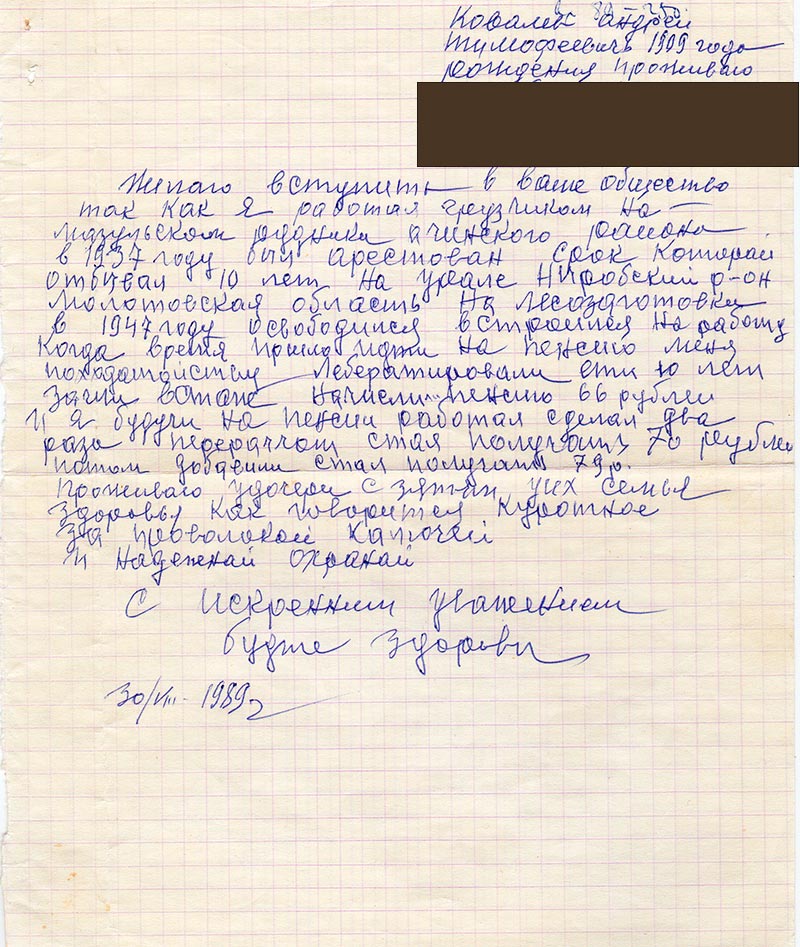 Ковалев Андрей
Тимофеевичъ 1909 года
рождения проживаю
Жилаю вступить в ваше общество
так как я работая грузчиком на
мазульском рудники ачинского района
в 1937 году был арестован срок которай
отбывал 10 лет на урале Ныробский р-он
молотовская область на лесоздготовки
в 1947 году освободился встроился на работу
когда время пришло идти на пенсию меня
походатойству лебератировали эти 10 лет
зачли встаже начислили пенсию 66 рублей
и я будучи на пенсии работал сделал два
раза перерачкот стал получать 70 рублей
потом добавили стал получать 79 р.
Проживаю удочери с зятем уих семья
здоровья как говорится куротное
за проволокой калючей
и надежнай охранай
С искренним уважением
будте здоровы
30/VIII- 1989г